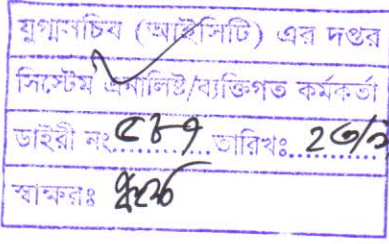 যুগ্মসচিব (আইসিটি) এর দপ্তর
সিস্টেম এনালিষ্ট/ব্যক্তিগত কর্মকর্তা
ডাইরী নং.....৫৮৭.....তারিখঃ..২৩/৯
স্বাক্ষরঃ